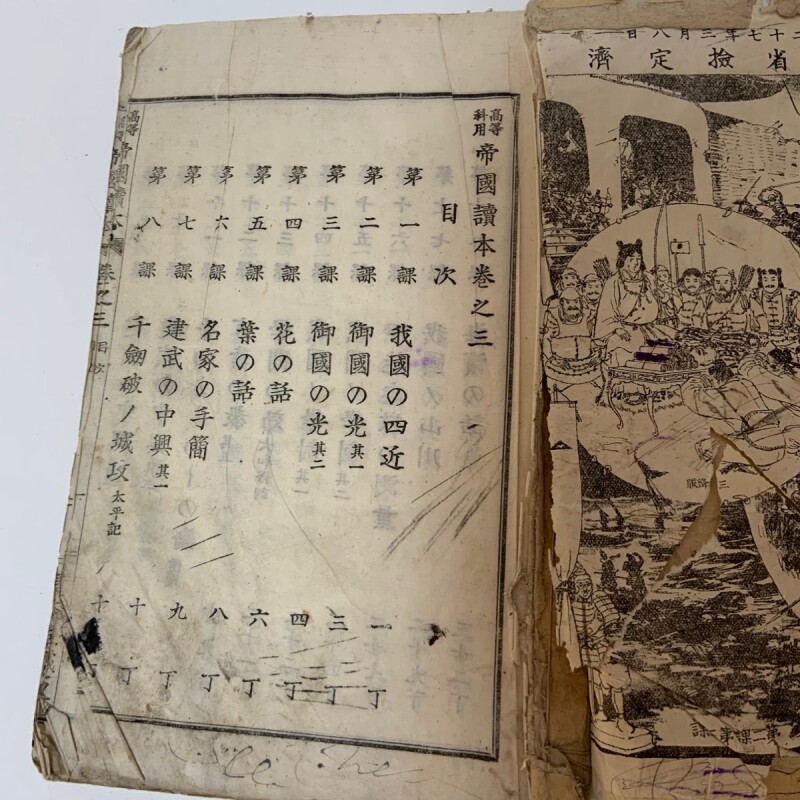 二十七年三月八日
省檢定濟
高等科用 帝國讀本卷之三
目次
第一課 我國の四近 一丁
第二課 御國の光 其一 三丁
第三課 御國の光 其二 四丁
第四課 花の話 六丁
第五課 葉の話 八丁
第六課 名家の手簡 九
第七課 建武の中興 其一 十丁
第八課 千劔破ノ城攻 太平記 十
高等 帝國讀本 卷之三 目次